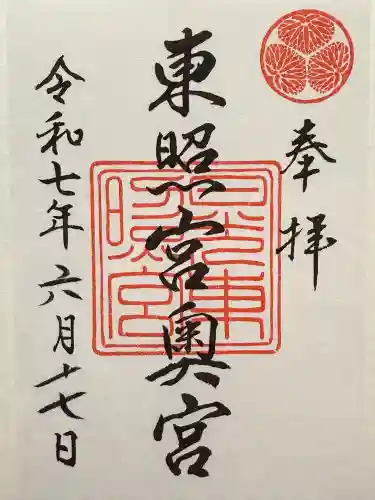 奉拝
東照宮奥宮
令和七年六月十七日